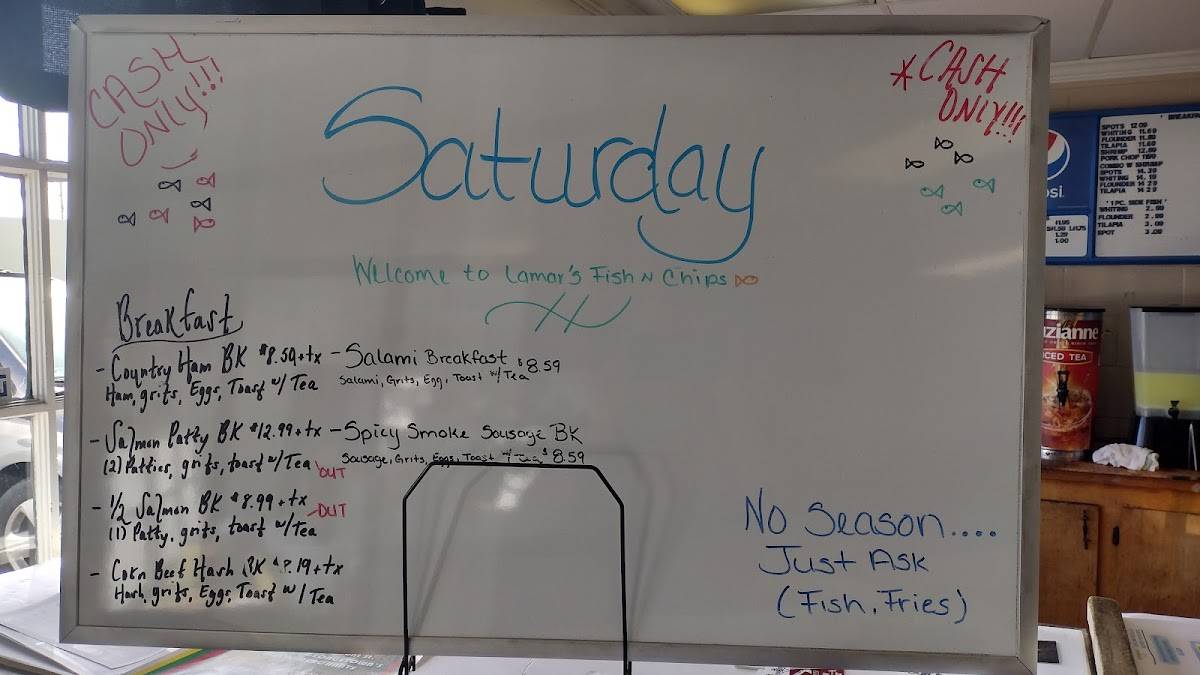 CASH
ONLY!!!
*CASH
ONLY!!!
Saturday
Welcome to Lamar's Fish N Chips
Breakfast
- Country Ham BK $8.59+tx
Ham, grits, Eggs, Toast w/ Tea
- Salmon Patty BK $12.99+tx
(2) Patties, grits, toast w/ Tea OUT
- 1/2 Salmon BK $8.99+tx
(1) Patty, grits, toast w/Tea
OUT
- Corn Beef Hash BK .19+tx
Hash, grits, Eggs, Toast w/ Tea
- Salami Breakfast $8.59
Salami, Grits, Egg, Toast w/ Tea
- Spicy Smoke Sausage BK
Sausage, Grits, Eggs, Toast w/ Tea $8.59
No Season....
Just Ask
(Fish, Fries)
psi.
SPOTS 12.09
WHITING 11.69
FLOUNDER 11.89
TILAPIA 11.69
SHRIMP 12.89
PORK CHOP
COMBO W SHRIMP
SPOTS 14.39
WHITING 14.19
FLOUNDER 14.29
TILAPIA 14.29
' 1 PC. SIDE FISH '
WHITING 2.99
FLOUNDER 2.99
TILAPIA 3.09
SPOT 3.09
1.29
1.00
uzianne
ICED TEA